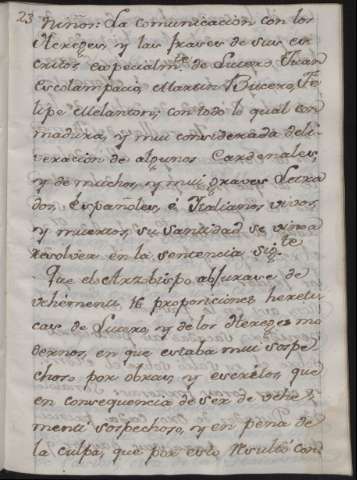 23
niños: La comunicacion con los
Hereges, y las fraces de sus es
critos especialm.te de Lutero, Juan
Ecolampacio, Martin Bucero, Fe
lipe Melancton, con todo lo qual con
madura, y mui considerada deli
veracion de algunos Cardenales,
y de muchos, y mui graves Letra
dos, Españoles, é Italianos vivos,
y muertos, su Santidad se vino a
resolver en la sentencia sig.te
Que el Arzbispo abjurase de
vehementi, 16 proposiciones hereti
cas de Lutero, y de los Hereges mo
dernos, en que estaba mui sospe
choso por obras, y escritos, que
en consequencia de ser de vehe,
menti sospechoso, y en pena de
la culpa, que por esto resultó con